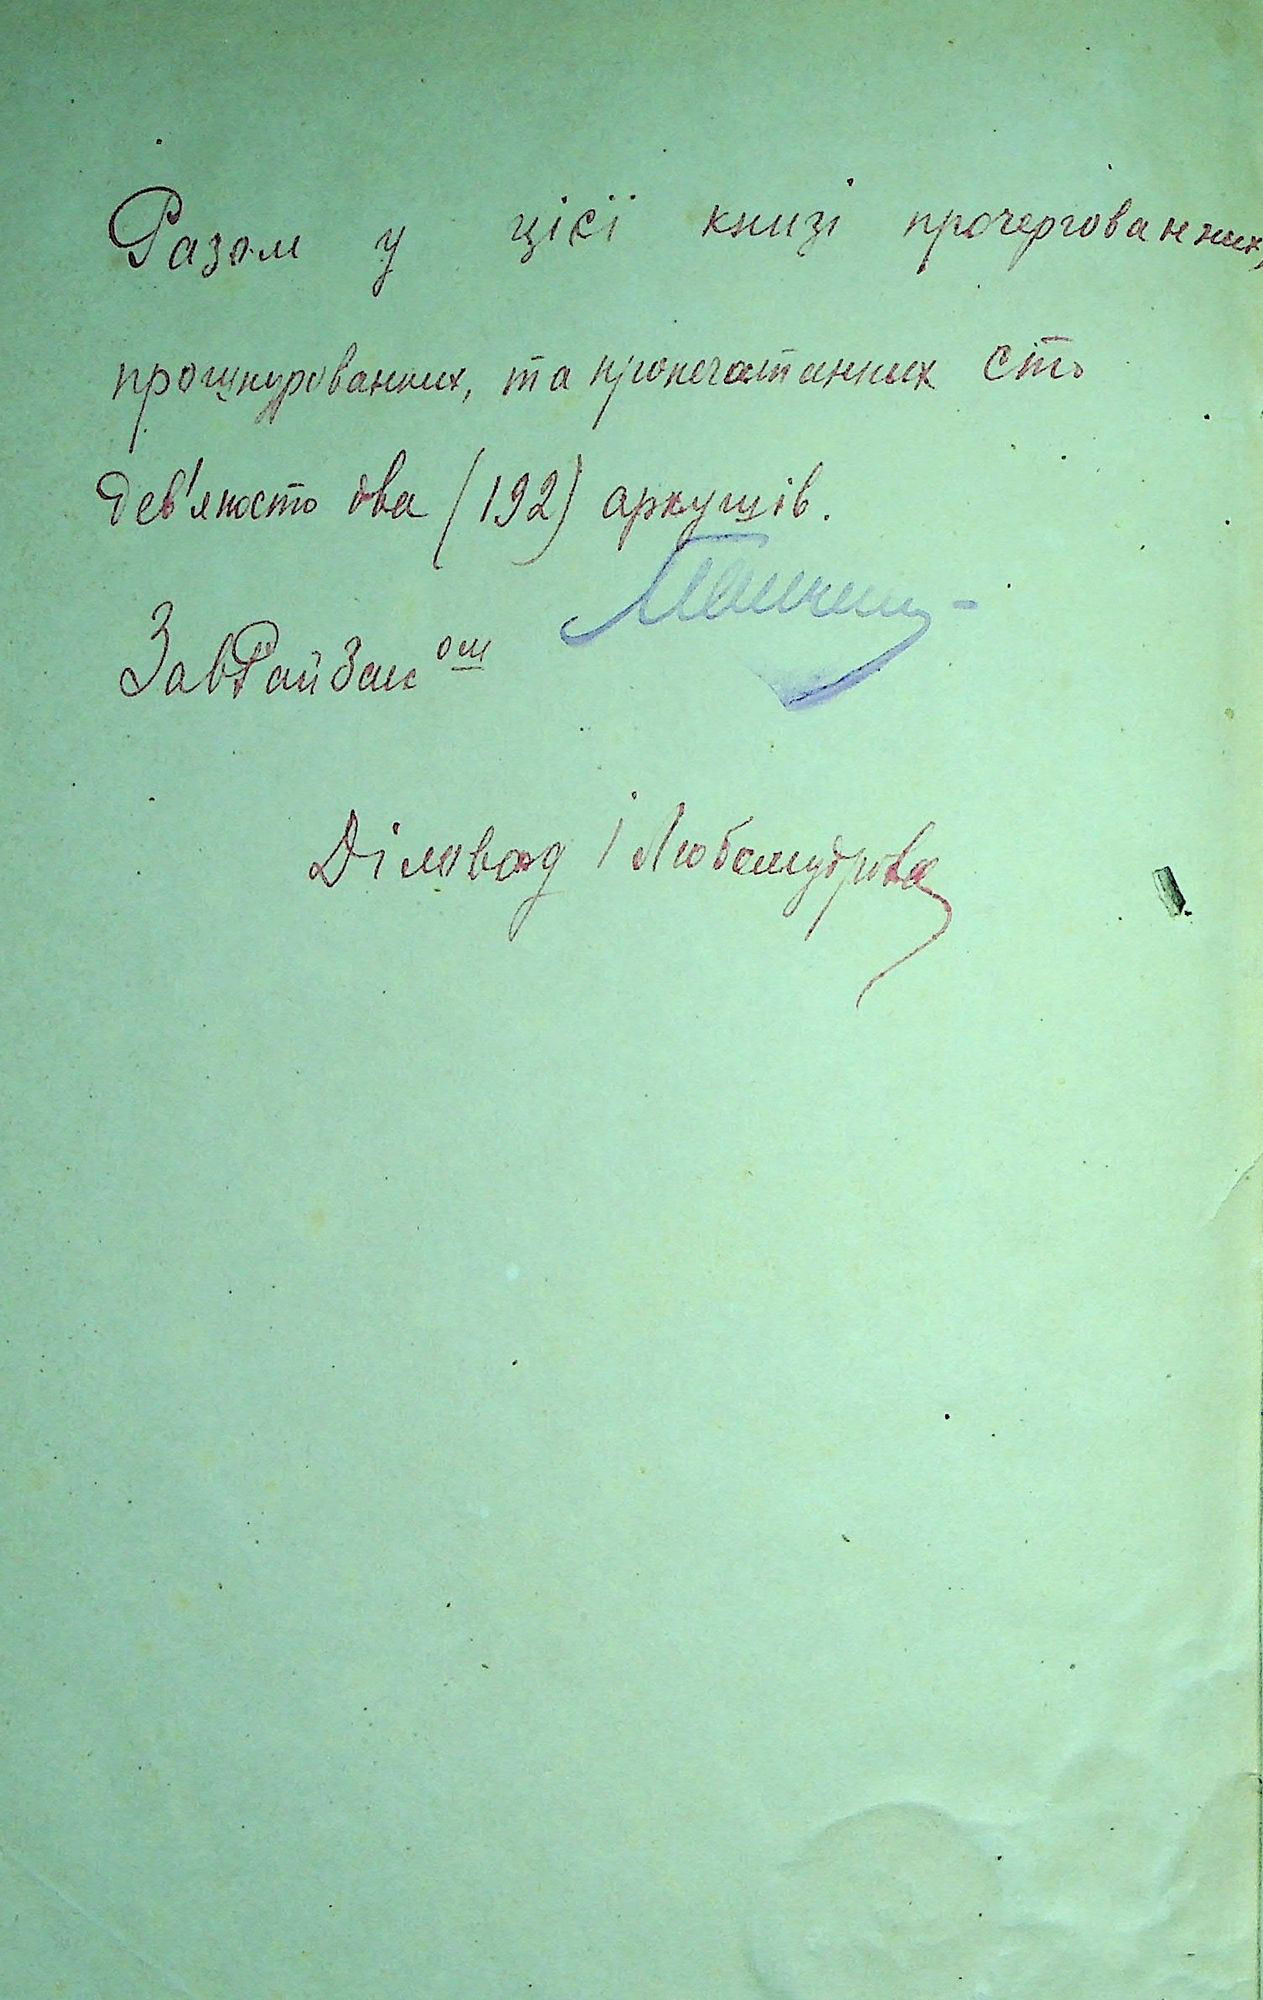 Разом у цієї книзі прочергованних,
прошнурованних, та пропечатанних сто
дев'яносто два (192) аркушів.
ЗавРайЗаг ом
Діловод Любомудрова